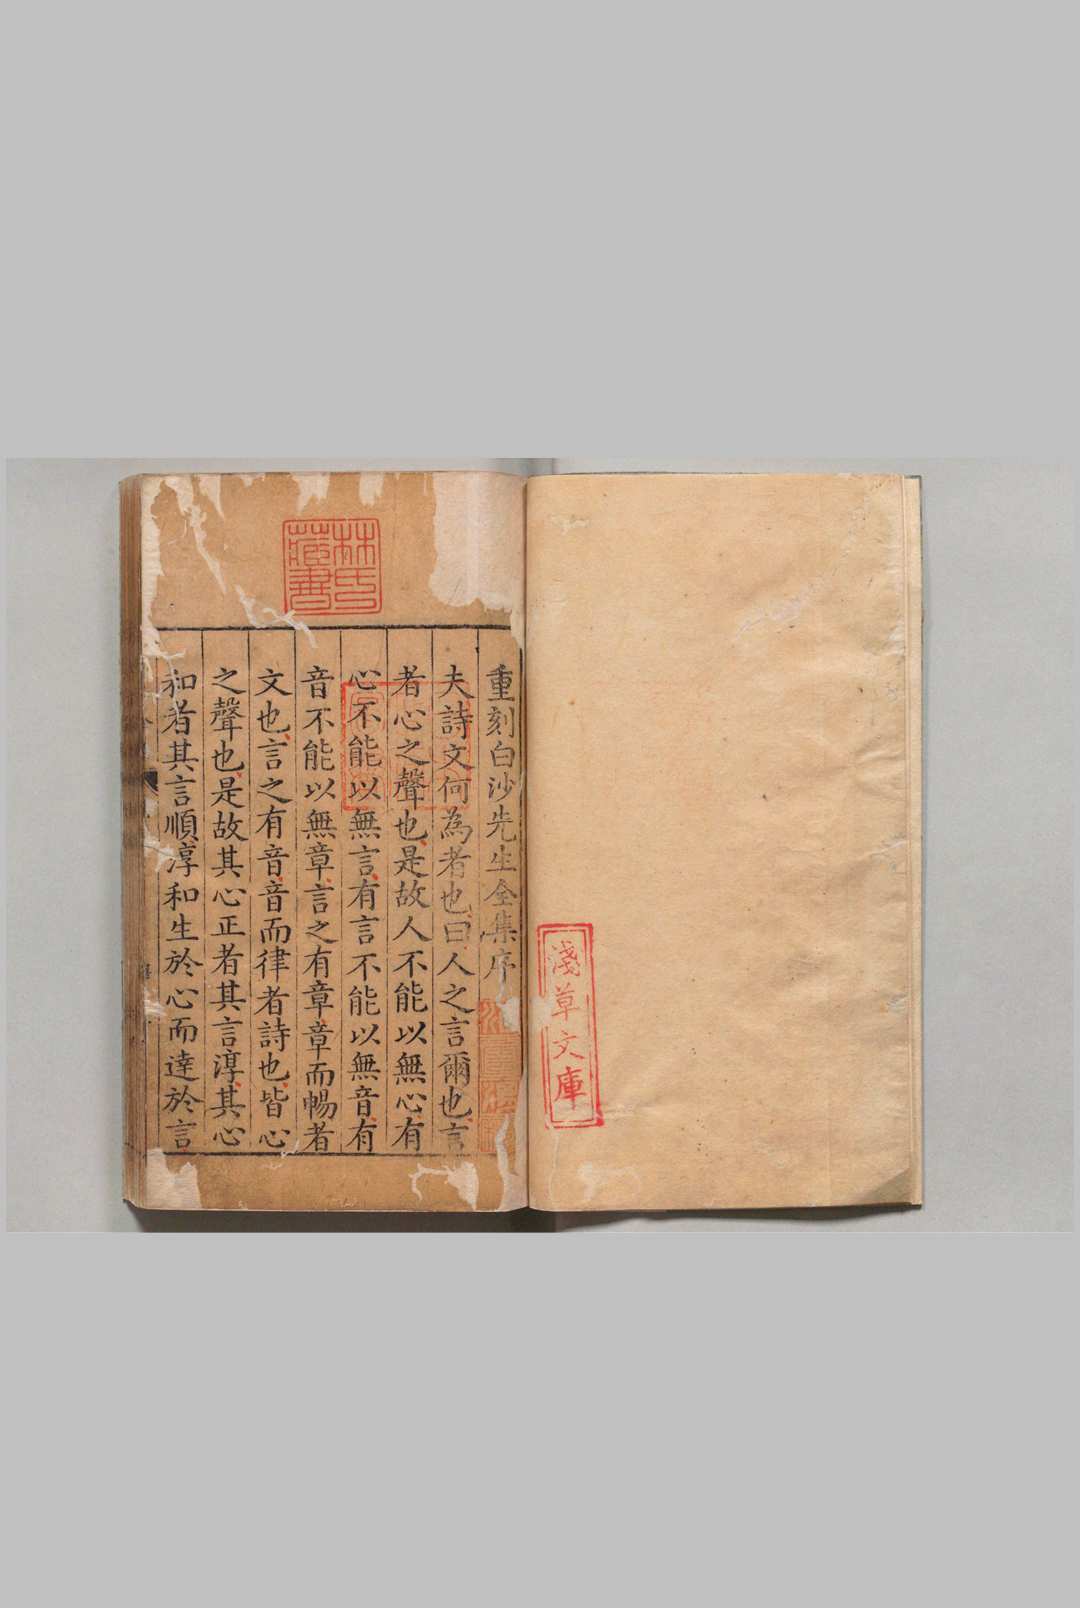 淺草文庫
林氏
藏書
重刻白沙先生全集序
夫詩文何為者也曰人之言爾也言
者心之聲也是故人不能以無心有
心不能以無言有言不能以無音有
音不能以無章言之有章章而暢者
文也言之有音音而律者詩也皆心
之聲也是故其心正者其言淳其心
和者其言順淳和生於心而達於言